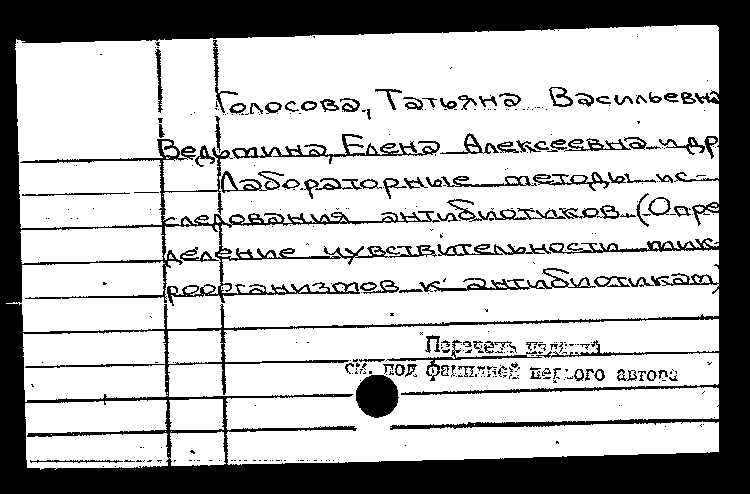 Голосова, Татьяна Васильевна
Ведьмина, Елена Алексеевна и др
Лабораторные методы ис-
следования антибиотиков. (Опре
деление чувствительности мик-
роорганизмов к антибиотикам)
Перечень изданий
см. под фамилией первого автора